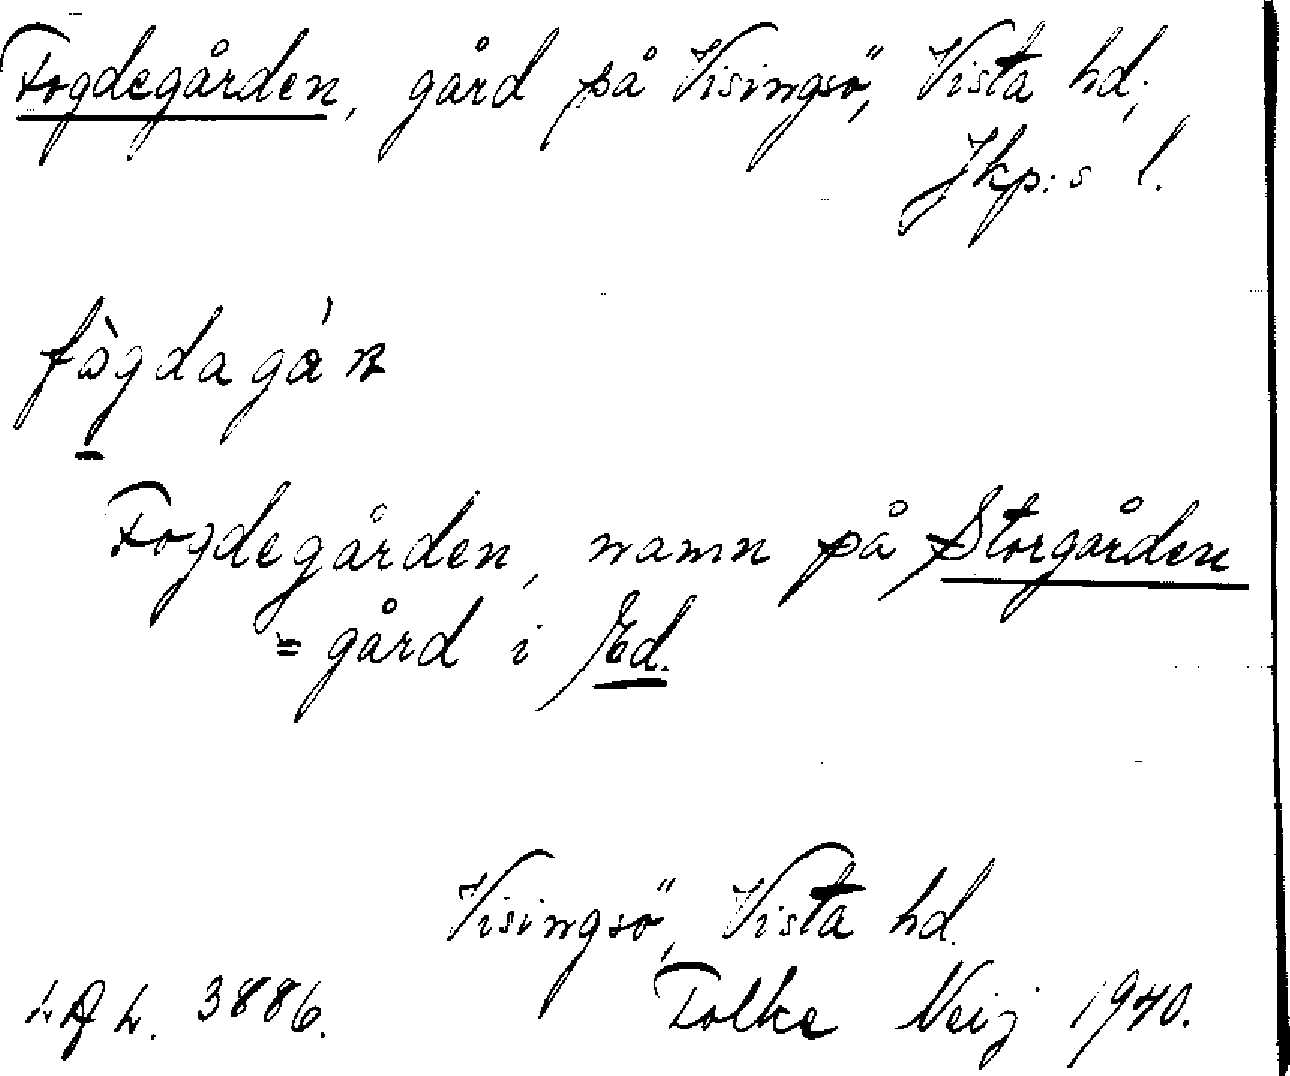 Fogdegården, gård på Visingsö, Vista hd;
Jkp:s l.
fògdagá'n
Fogdegården, namn på Storgården
= gård i Ed.
Visingsö, Vista hd.
3886. Folke Neij 1940.